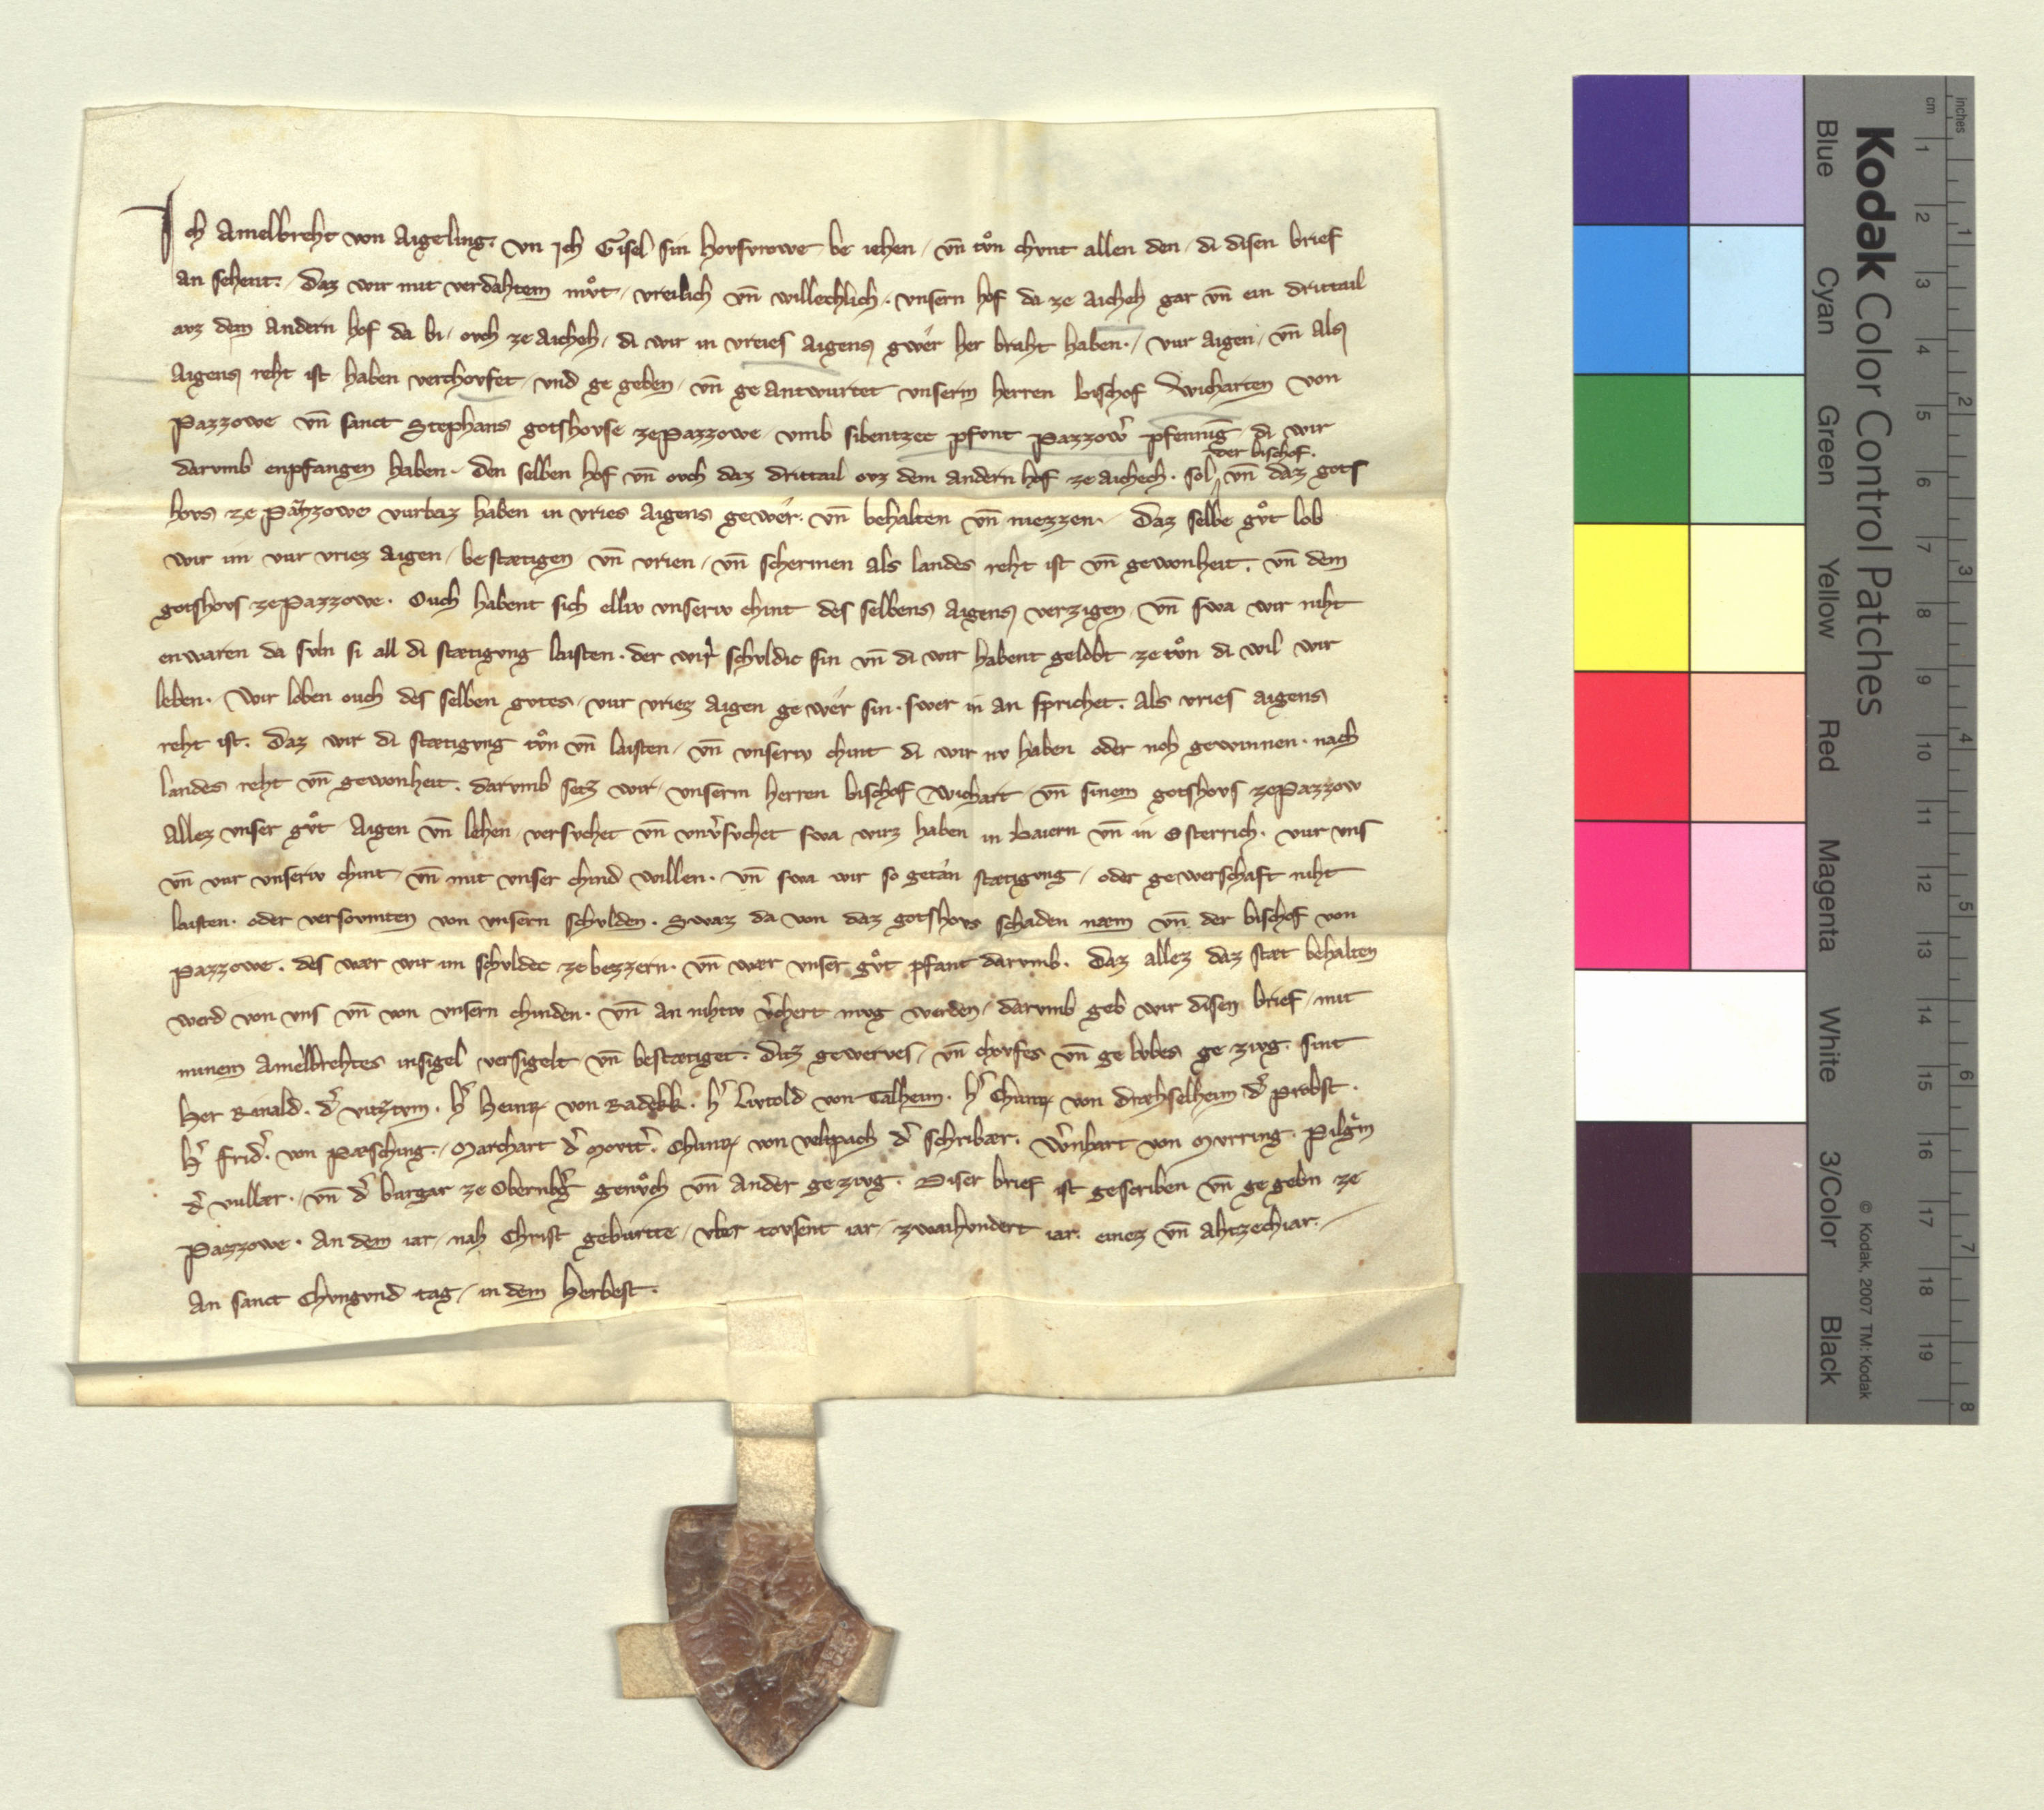 Ich Amelbreht von Aigeling. vn Ich Gisel sin hovsvrowe be iehen / vn̄ tůn chvnt allen den / di disen brief
an sehent. / daz wir mit verdahtem můt / vreilich vn̄ willechlich. vnsern hof da ze Aicheh gar vn̄ ein drittail
avz dem andern hof da bi / ovch ze Aicheh / di wir in vreies Aigens gwer her braht haben. / vur Aigen / vn̄ als
Aigens reht ist / haben verchovfet / vnd ge geben / vn̄ ge antwurtet vnserm herren bischof Wicharten von
Pazzowe vn̄ sanct Stephans gotshovse zePazzowe / vmb sibentzec pfvnt Pazzow̓ pfenning / di wir
darvmb enpfangen haben. den selben hof vn̄ ovch daz drittail ovz dem andern hof ze Aichech. sol der bischof. vn̄ daz gots
hovs ze Pazzowe vurbaz haben in vries Aigens gewer. vn̄ behalten vn̄ niezzen. / daz selbe gůt lob
wir im vur vriez Aigen / be stætigen / vn̄ vrien / vn̄ schermen als landes reht ist vn̄ gewonheit. vn̄ dem
gotshovs zePazzowe. Ouch habent sich elliv vnseriv chint des selbens Aigens verzigen / vn̄ swa wir niht
enwaren da svln si all di stætigvng laisten. der wir schvldic sin vn̄ di wir habent gelobt ze tůn di wil wir
leben. / Wir loben ouch des selben gvtes / vur vriez Aigen ge wer sin. swer in an sprichet. als vries Aigens
reht ist. daz wir di stætigvng tůn vn̄ laisten / vn̄ vnseriv chint di wir nv haben oder noh gewinnen. nach
landes reht vn̄ gewonheit. darvmb setz wir / vnserm herren bischof Wichart vn̄ sinem gotshovs zePazzow
Allez vnser gůt Aigen vn̄ lehen / versvchet vn̄ vnv̓svchet swa wirz haben in Baiern vn̄ in Osterrich. vur vns
vn̄ vur vnseriv chint / vn̄ mit vnser chind willen. vn̄ swa wir so getan stætigvng / oder ge werschaft niht
laisten. oder versovmten von vnsern schvlden. Swaz da von daz gotshovs schaden næm vn̄ der bischof von
Pazzowe. des wær wir im schvldec ze bezzern. vn̄ wær vnser gůt pfant darvmb. daz allez daz stæt behalten
werd von vns vn̄ von vnsern chinden. vn̄ an nihtiv v̓chert mvg werden / darvmb geb wir disen brief / mit
minem Amelbrehtes insigel versigelt vn̄ bestætiget. ditz gewerves / vn̄ chovfes vn̄ ge lvbes ge zivg. sint
Her Rinald. d̓ vitztvm. h̓ Heinr. von Radekk. h̓ Livtold von Talheim. h̓ Chunr. von dræhselheim d̓ Probst.
h̓ Frid̓. von Pæsching. / Marchart d̓ Movtt̓. Chunr. von veltpach d̓ schribær. W̓nhart von Mvrring. Pilg̓m
d̓ vullær. / vn̄ d̓ burgær ze Obernb̓g genůch vn̄ ander ge zivg. Diser brief ist gescriben vn̄ ge gebn ze
Pazzowe. an dem iar / nah Christ gebûrtte / vber tovsent iar / zwaihvndert iar. einez vn̄ ahtzech iar. /
An sanct Chvngvnd tag / in dem herbest.
Kodak Color Control Patches
© Kodak, 2007 TM: Kodak
Blue Cyan Green Yellow Red Magenta White 3/Color Black
cm 1 2 3 4 5 6 7 8 9 10 11 12 13 14 15 16 17 18 19
inches 1 2 3 4 5 6 7 8